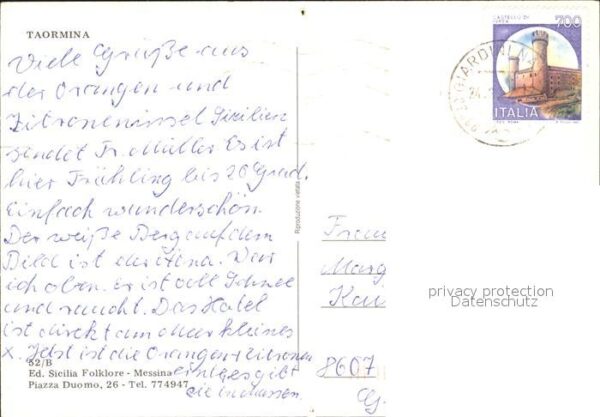 TAORMINA
Viele Grüße aus
der Orangen und
Zitroneninsel Sizilien
sendet Fr. Müller Es ist
hier Frühling bis 20 Grad,
Einfach wunderschön.
Der weiße Berg auf dem
Bild ist der Ätna. War
ich oben. er ist voll Schnee
und raucht. Das Hotel
ist direkt am Meer kleines
x. Jetzt ist die Orangen + Zitronen
die in Massen
52/B
Ed. Sicilia Folklore - Messina
Piazza Duomo, 26 - Tel. 774947
Riproduzione vietata
CASTELLO DI
IVREA
700
ITALIA
GIARDINI NA
Frau
Marg
8607
privacy protection
Datenschutz